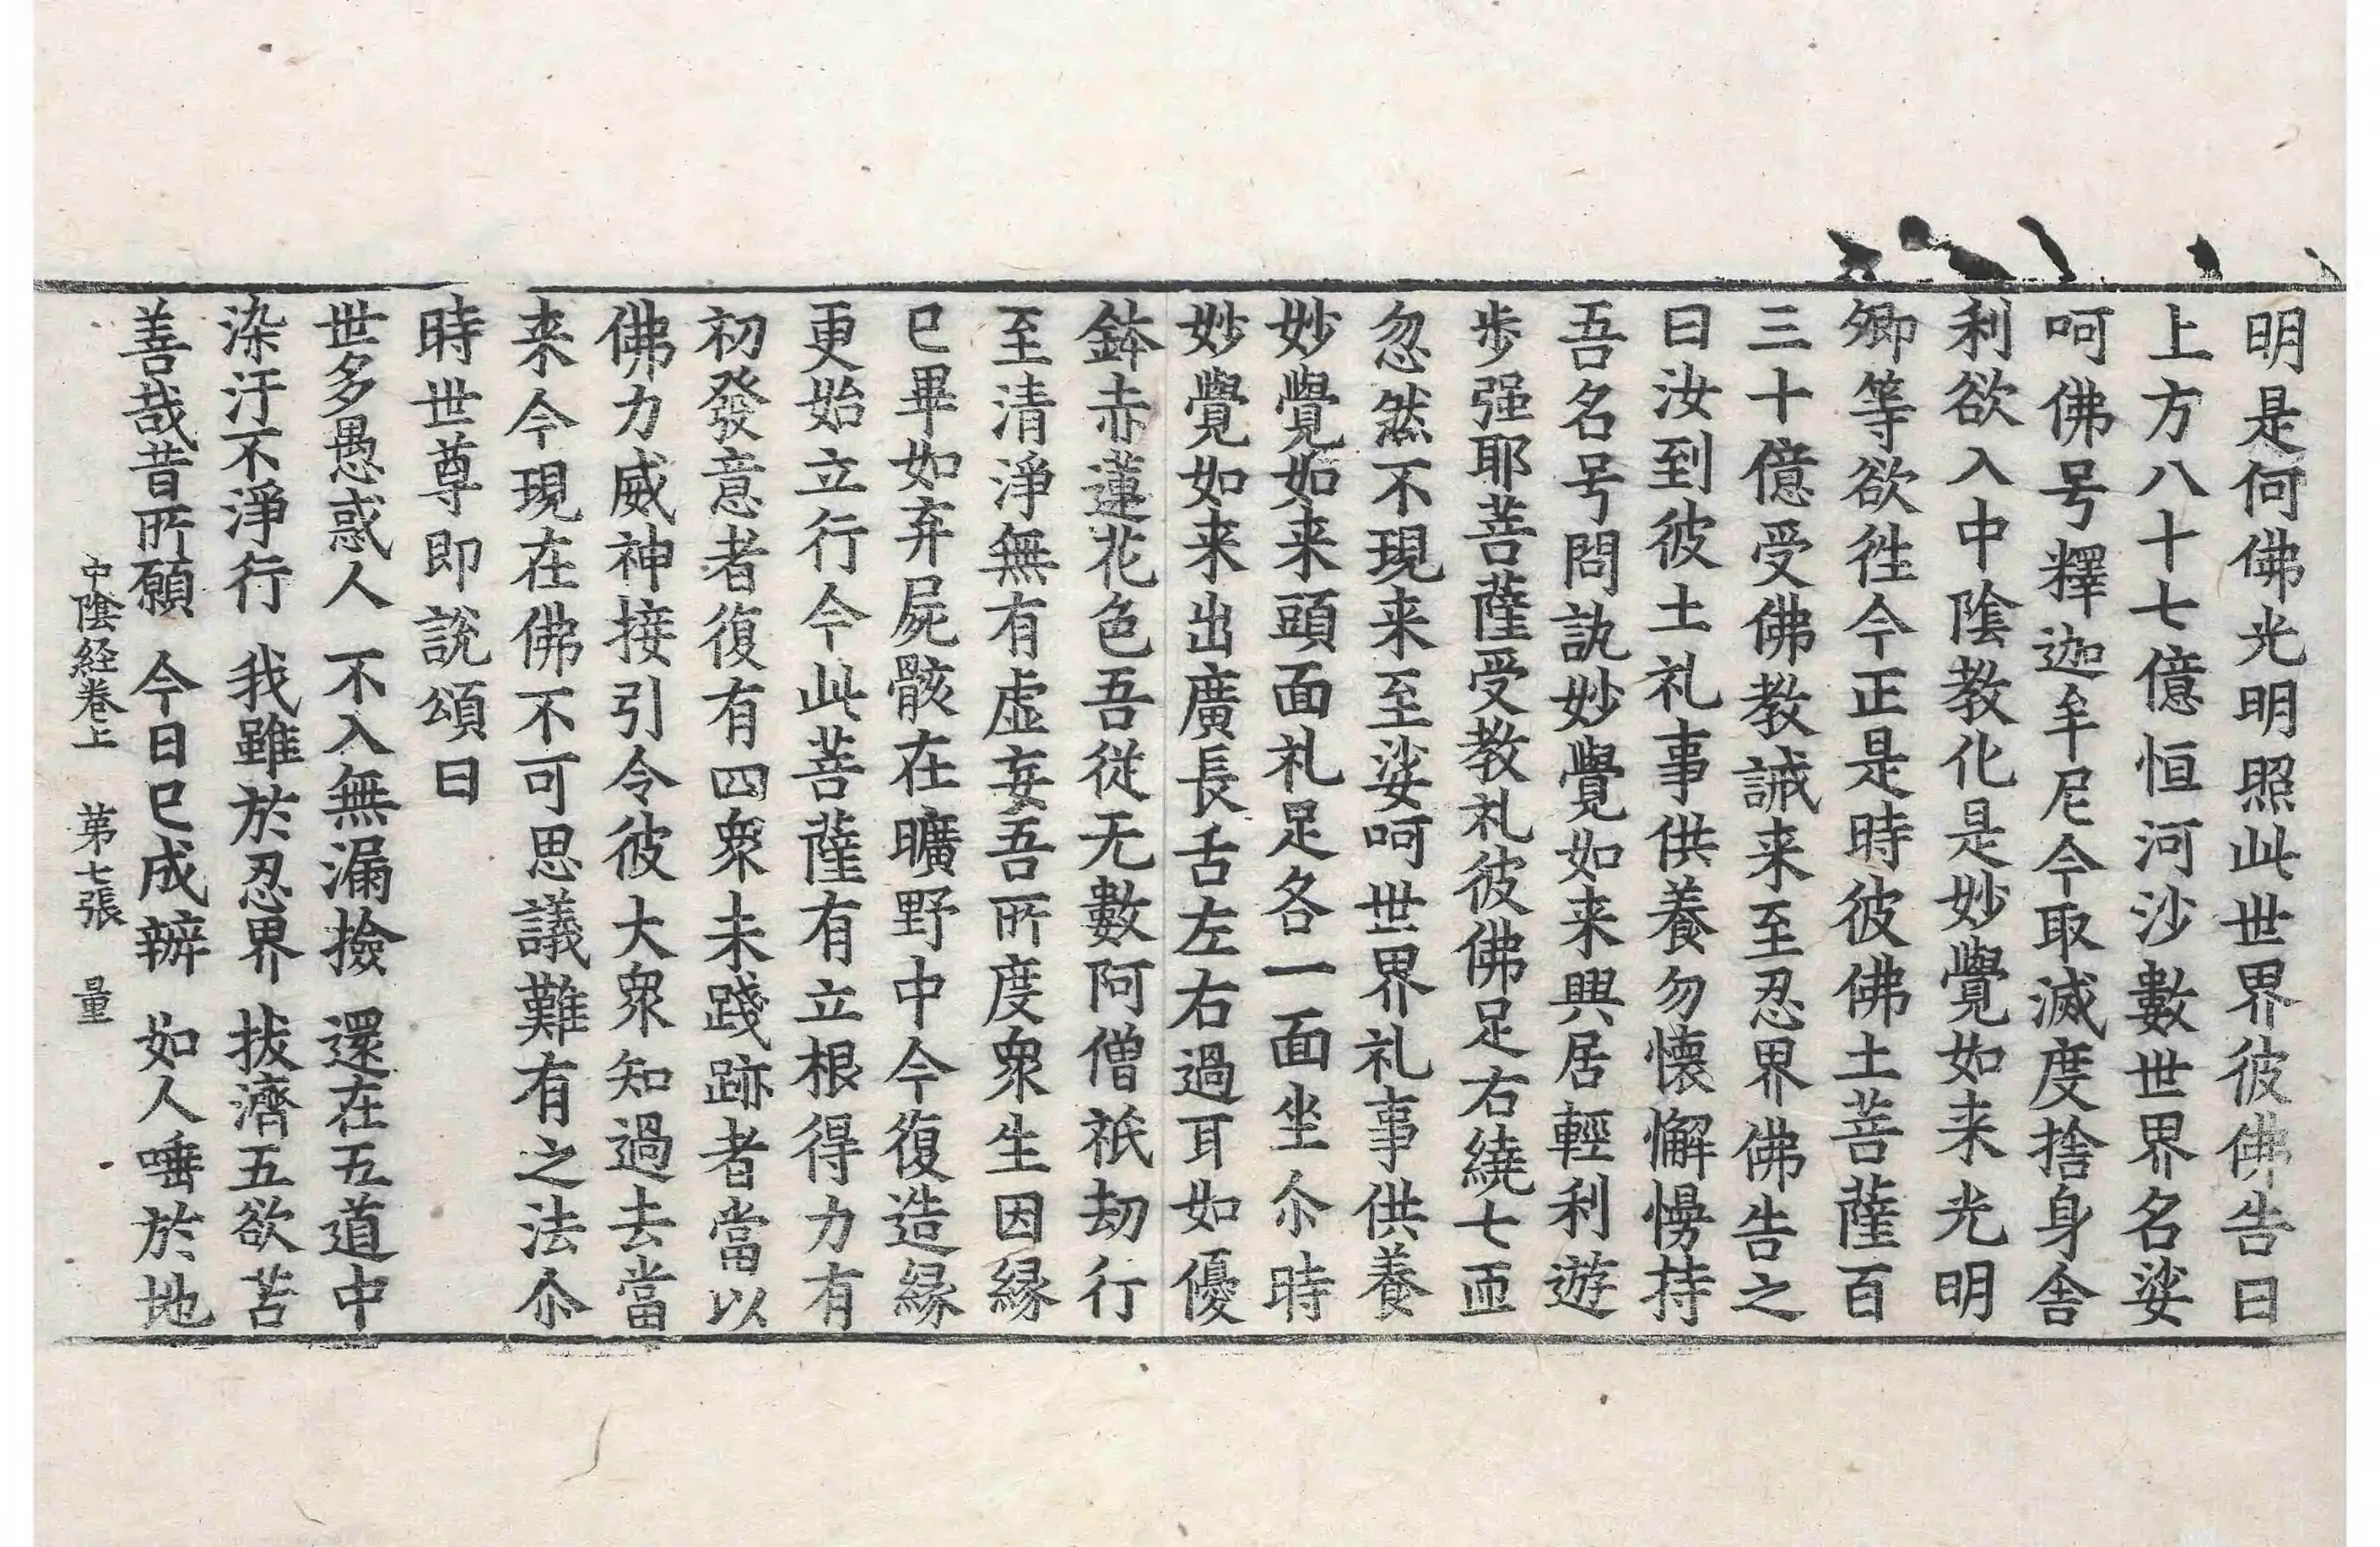 明是何佛光明照此世界彼佛告曰
上方八十七億恒河沙數世界名娑
呵佛号釋迦牟尼今取滅度捨身舍
利欲入中陰教化是妙覺如来光明
卿等欲徃今正是時彼佛土菩薩百
三十億受佛教誡来至忍界佛告之
曰汝到彼土礼事供養勿懐懈慢持
吾名号問訊妙覺如来興居輕利遊
歩强耶菩薩受教礼彼佛足右繞七匝
忽然不現来至娑呵世界礼事供養
妙覺如来頭面礼足各一面坐尒時
妙覺如来出廣長舌左右過耳如優
鉢赤蓮花色吾從无數阿僧祇劫行
至清淨無有虚妄吾所度衆生因縁
已畢如弃屍骸在曠野中今復造縁
更始立行今此菩薩有立根得力有
初發意者復有四衆未踐跡者當以
佛力威神接引令彼大衆知過去當
来今現在佛不可思議難有之法尒
時世尊即說頌曰
世多愚惑人　不入無漏撿　還在五道中
染汙不淨行　我雖於忍界　拔濟五欲苦
善哉昔所願　今日已成辦　如人唾於地
中陰経卷上　第七張　量